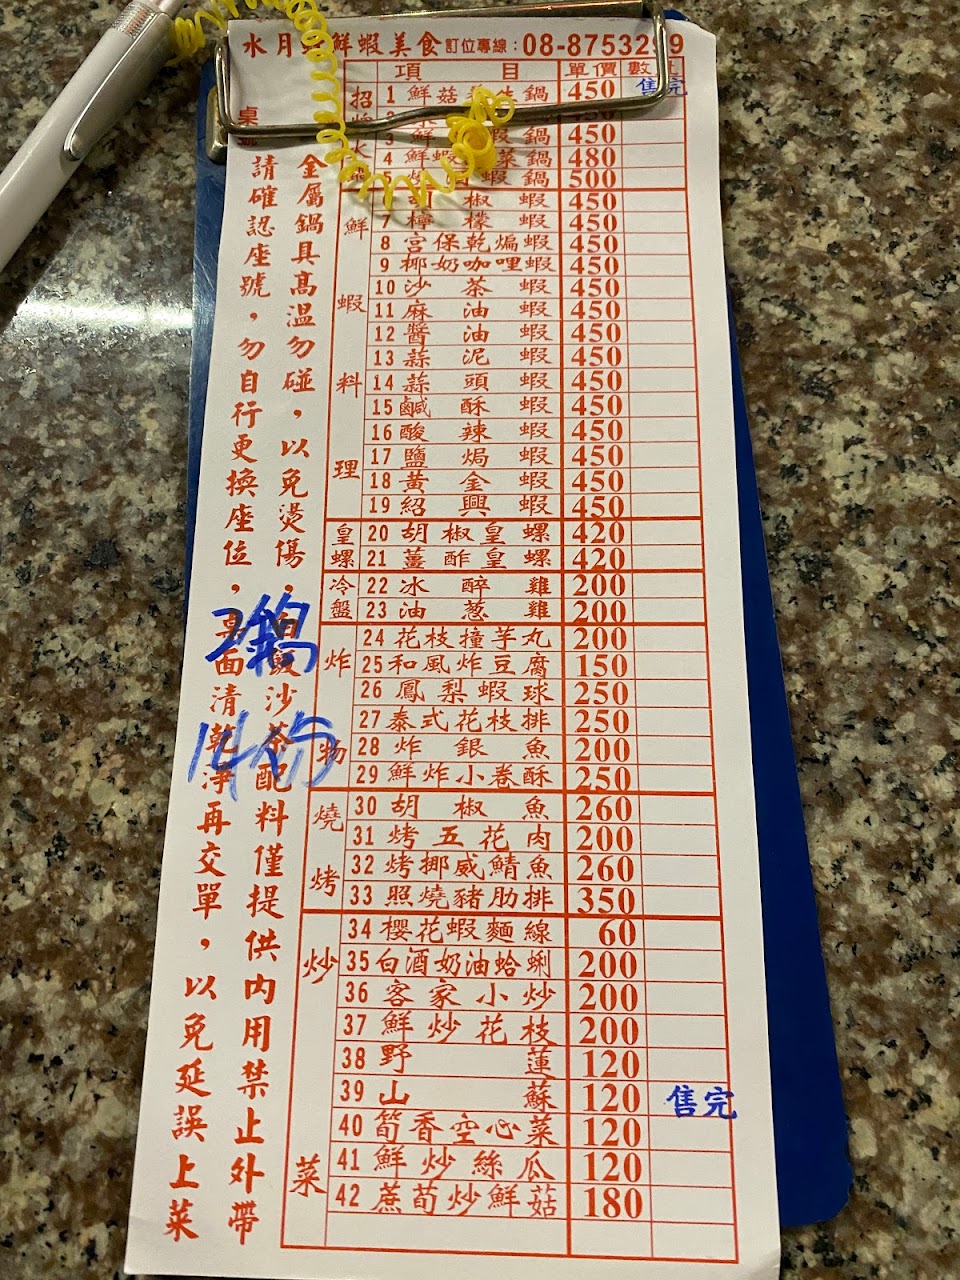 水月 鮮蝦美食 訂位專線:08-8753299
項 目 單價 數
桌號
招
1 鮮菇 鍋 450 售完
3 鮮 蝦鍋 450
4 鮮蝦 菜鍋 480
5 蝦鍋 500
鮮蝦料理
胡椒蝦 450
7 檸檬蝦 450
8 宮保乾煸蝦 450
9 椰奶咖哩蝦 450
10 沙茶蝦 450
11 麻油蝦 450
12 醬油蝦 450
13 蒜泥蝦 450
14 蒜頭蝦 450
15 鹹酥蝦 450
16 酸辣蝦 450
17 鹽焗蝦 450
18 黃金蝦 450
19 紹興蝦 450
皇螺
20 胡椒皇螺 420
21 薑酢皇螺 420
冷盤
22 冰醉雞 200
23 油蔥雞 200
炸物
24 花枝撞芋丸 200
25 和風炸豆腐 150
26 鳳梨蝦球 250
27 泰式花枝排 250
28 炸銀魚 200
29 鮮炸小卷酥 250
燒烤
30 胡椒魚 260
31 烤五花肉 200
32 烤挪威鯖魚 260
33 照燒豬肋排 350
炒菜
34 櫻花蝦麵線 60
35 白酒奶油蛤蜊 200
36 客家小炒 200
37 鮮炒花枝 200
38 野蓮 120
39 山蘇 120 售完
40 筍香空心菜 120
41 鮮炒絲瓜 120
42 蔗荀炒鮮菇 180
金屬鍋具高溫勿碰,以免燙傷,白飯沙茶配料僅提供內用禁止外帶
請確認座號,勿自行更換座位,桌面清乾淨再交單,以免延誤上菜
2鍋